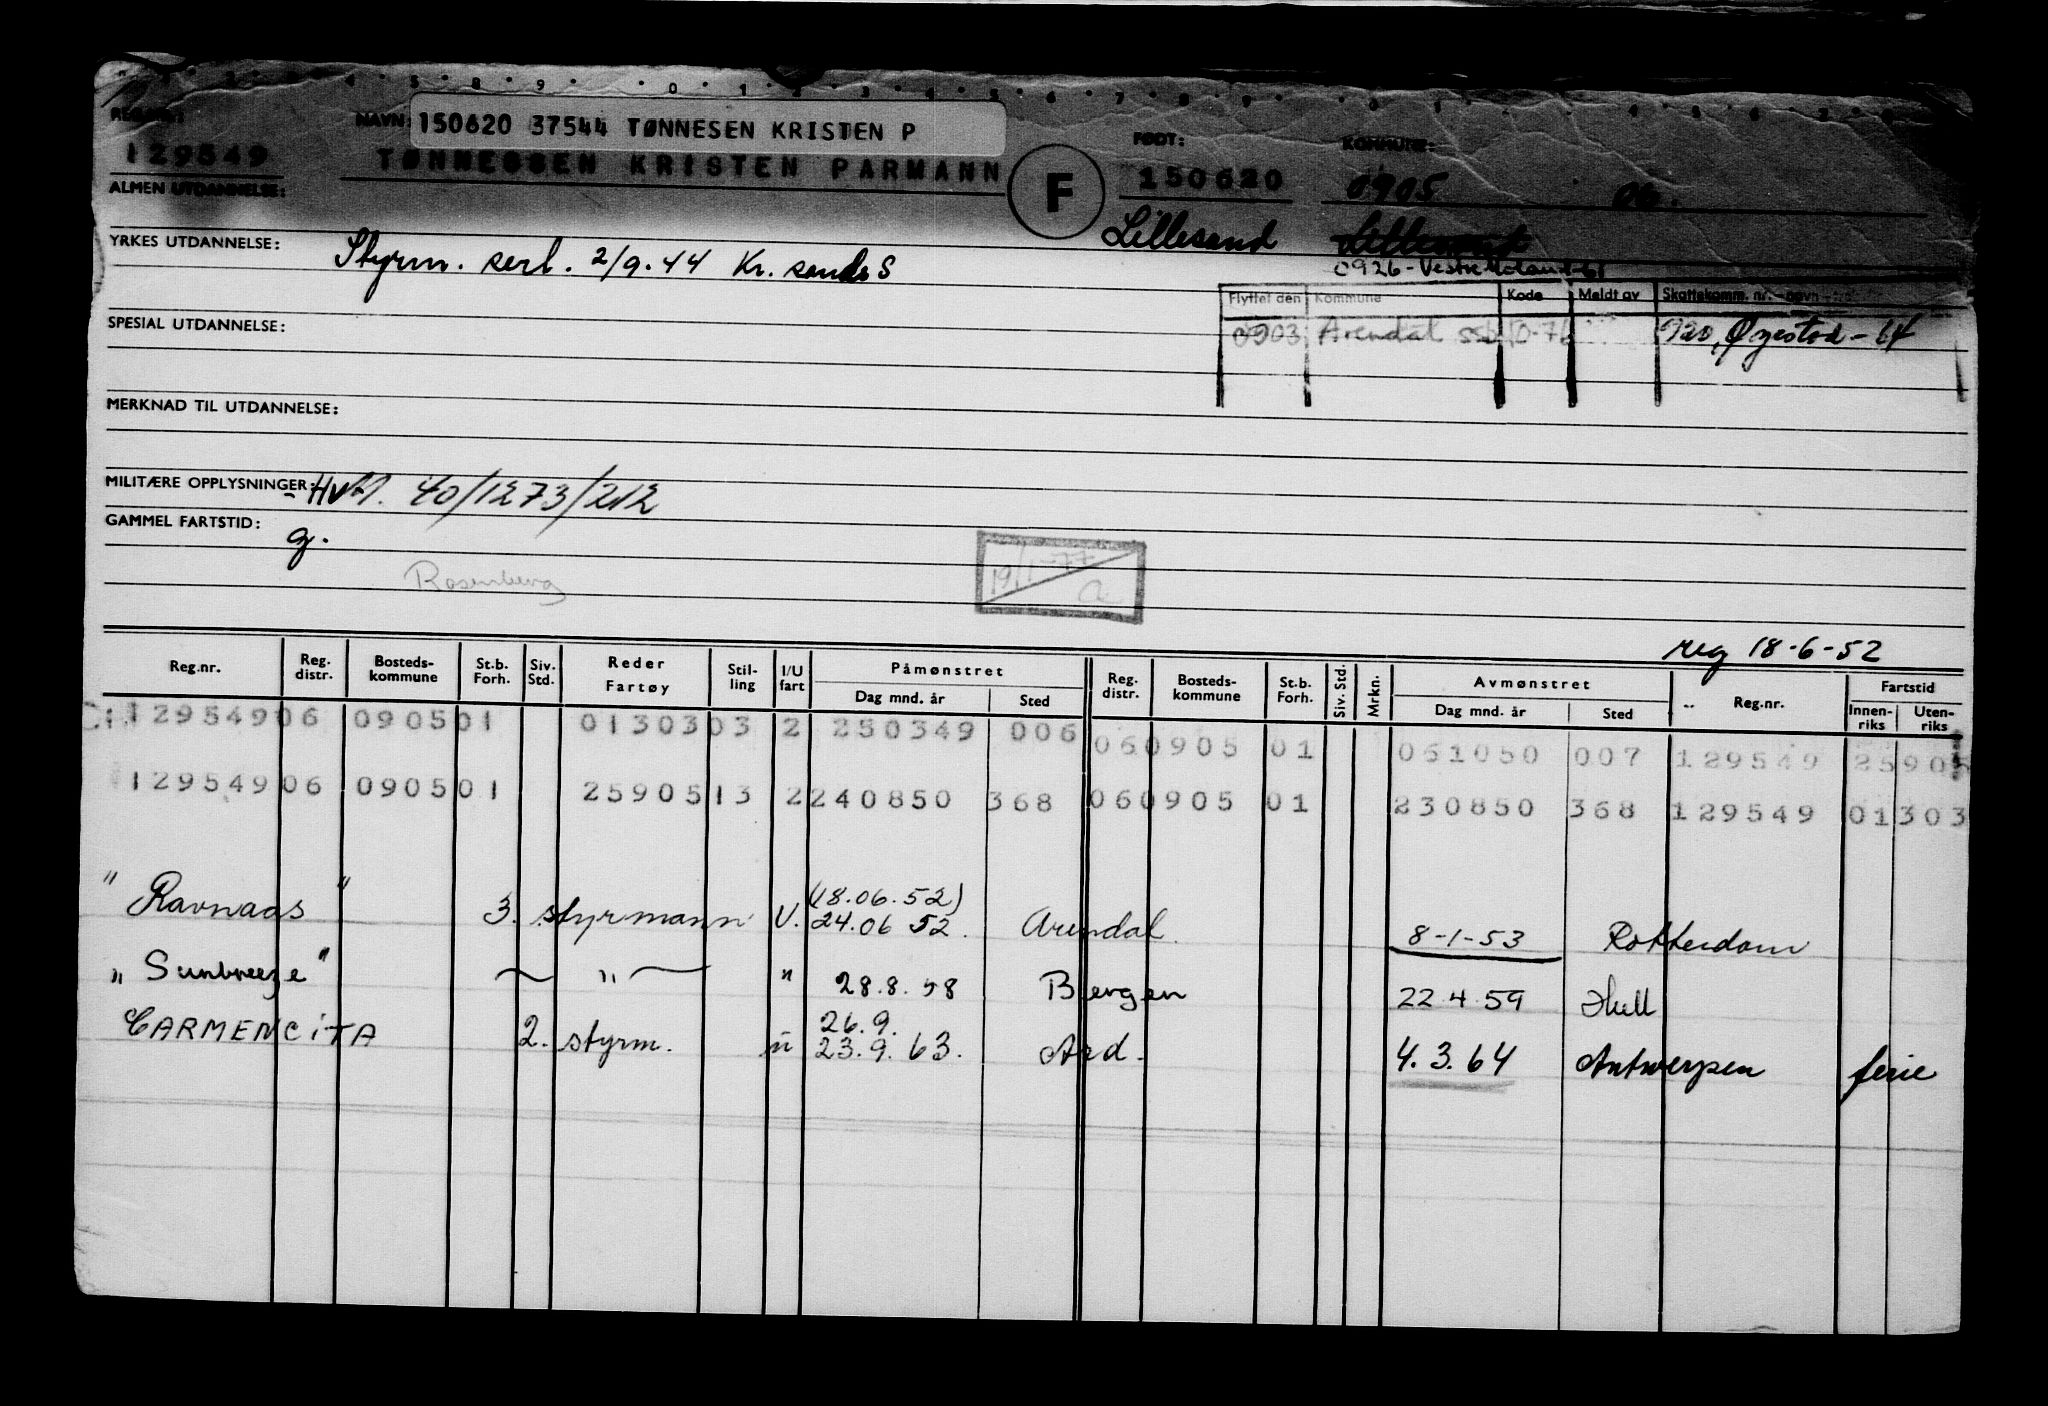 REG.NR:
129549
NAVN: 150620 37544 TØNNESEN KRISTEN P
TØNNESSEN KRISTEN PARMANN
F
FØDT:
150620
Lillesand
KOMMUNE:
0905 06.
Lillesand
0926 - Vestre Moland - 61
ALMEN UTDANNELSE:
YRKES UTDANNELSE: Styrm. serl. 2/9.44 Kr. sands S
Flyttet den Kommune Kode Meldt av Skattekomm. nr. - navn
0903 Arendal 10-76 920, Øyestad - 64
SPESIAL UTDANNELSE:
MERKNAD TIL UTDANNELSE:
MILITÆRE OPPLYSNINGER: 40/1273/212
GAMMEL FARTSTID: g.
Rosenberg
19/1-77
reg 18-6-52
Reg.nr. Reg. distr. Bosteds-kommune St.b. Forh. Siv. Std. Reder Fartøy Stil-ling I/U fart Påmønstret Dag mnd. år Sted Reg. distr. Bosteds-kommune St.b. Forh. Siv. Std. Mrkn. Avmønstret Dag mnd. år Sted Reg.nr. Fartstid Innen-riks Uten-riks
129549 06 0905 01 01303 03 2 250349 006 06 0905 01 061050 007 129549 25905
129549 06 0905 01 25905 13 2 240850 368 06 0905 01 230850 368 129549 01303
"Ravnaas" 3. styrmann U. (18.06.52) 24.06 52. Arendal. 8-1-53 Rotterdam
"Sunbreeze" — " — " 28.8.58 Bergen 22.4.59 Hull
CARMENCITA 2. styrm. u 26.9. 23.9.63. Ard. 4.3.64 Antwerpen ferie